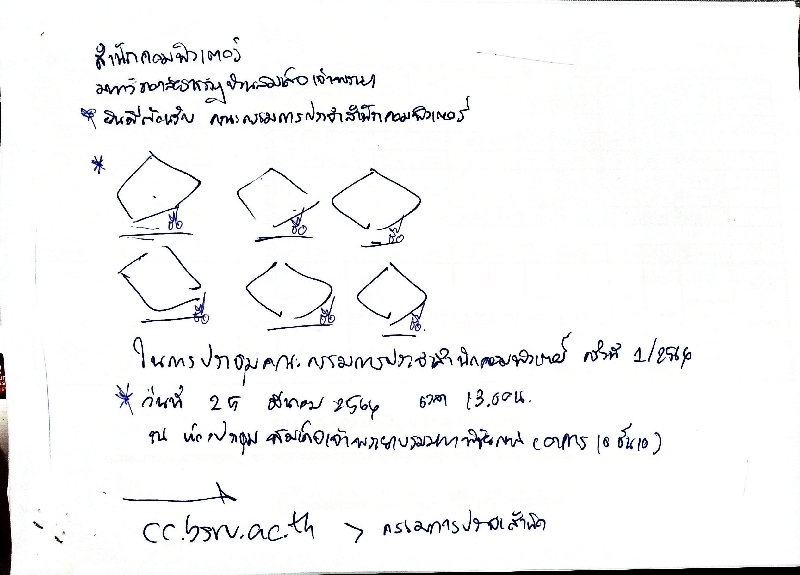 สำนักคอมพิวเตอร์
มหาวิทยาลัยราชภัฏบ้านสมเด็จเจ้าพระยา
* ยินดีต้อนรับ คณะกรรมการประจำสำนักคอมพิวเตอร์
*
ชื่อ ชื่อ ชื่อ
ชื่อ ชื่อ ชื่อ
ในการประชุมคณะกรรมการประจำสำนักคอมพิวเตอร์ ครั้งที่ 1/2564
* วันที่ 25 มีนาคม 2564 เวลา 13.00น.
ณ ห้องประชุม สมเด็จเจ้าพระยาบรมมหาพิชัยญาติ (อาคาร 10 ชั้น 10)
cc.bsru.ac.th > กรรมการประจำสำนัก